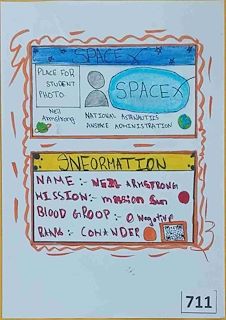 SPACEX
PLACE FOR
STUDENT
PHOTO
SPACEX
NEIL
ARMSTRONG
NATIONAL AERONAUTICS
ANSPACE ADMINISTRATION
INFORMATION
NAME :- NEIL ARMSTRONG
MISSION:- mission Sun
BLOOD GROOP :- O Negative
RANK :- COMANDER
711